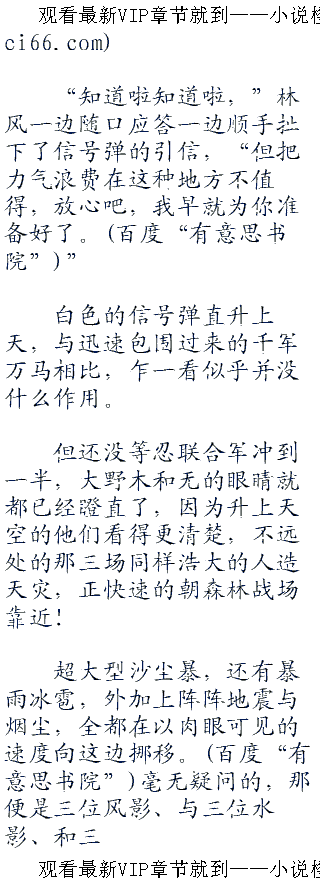 观看最新VIP章节就到——小说
ci66.com)
“知道啦知道啦，”林
风一边随口应答一边顺手扯
下了信号弹的引信，“但把
力气浪费在这种地方不值
得，放心吧，我早就为你准
备好了。(百度“有意思书
院”)”
白色的信号弹直升上
天，与迅速包围过来的千军
万马相比，乍一看似乎并没
什么作用。
但还没等忍联合军冲到
一半，大野木和无的眼睛就
都已经瞪直了，因为升上天
空的他们看得更清楚，不远
处的那三场同样浩大的人造
天灾，正快速的朝森林战场
靠近！
超大型沙尘暴，还有暴
雨冰雹，外加上阵阵地震与
烟尘，全都在以肉眼可见的
速度向这边挪移。(百度“有
意思书院”)毫无疑问的，那
便是三位风影、与三位水
影、和三
观看最新VIP章节就到——小说